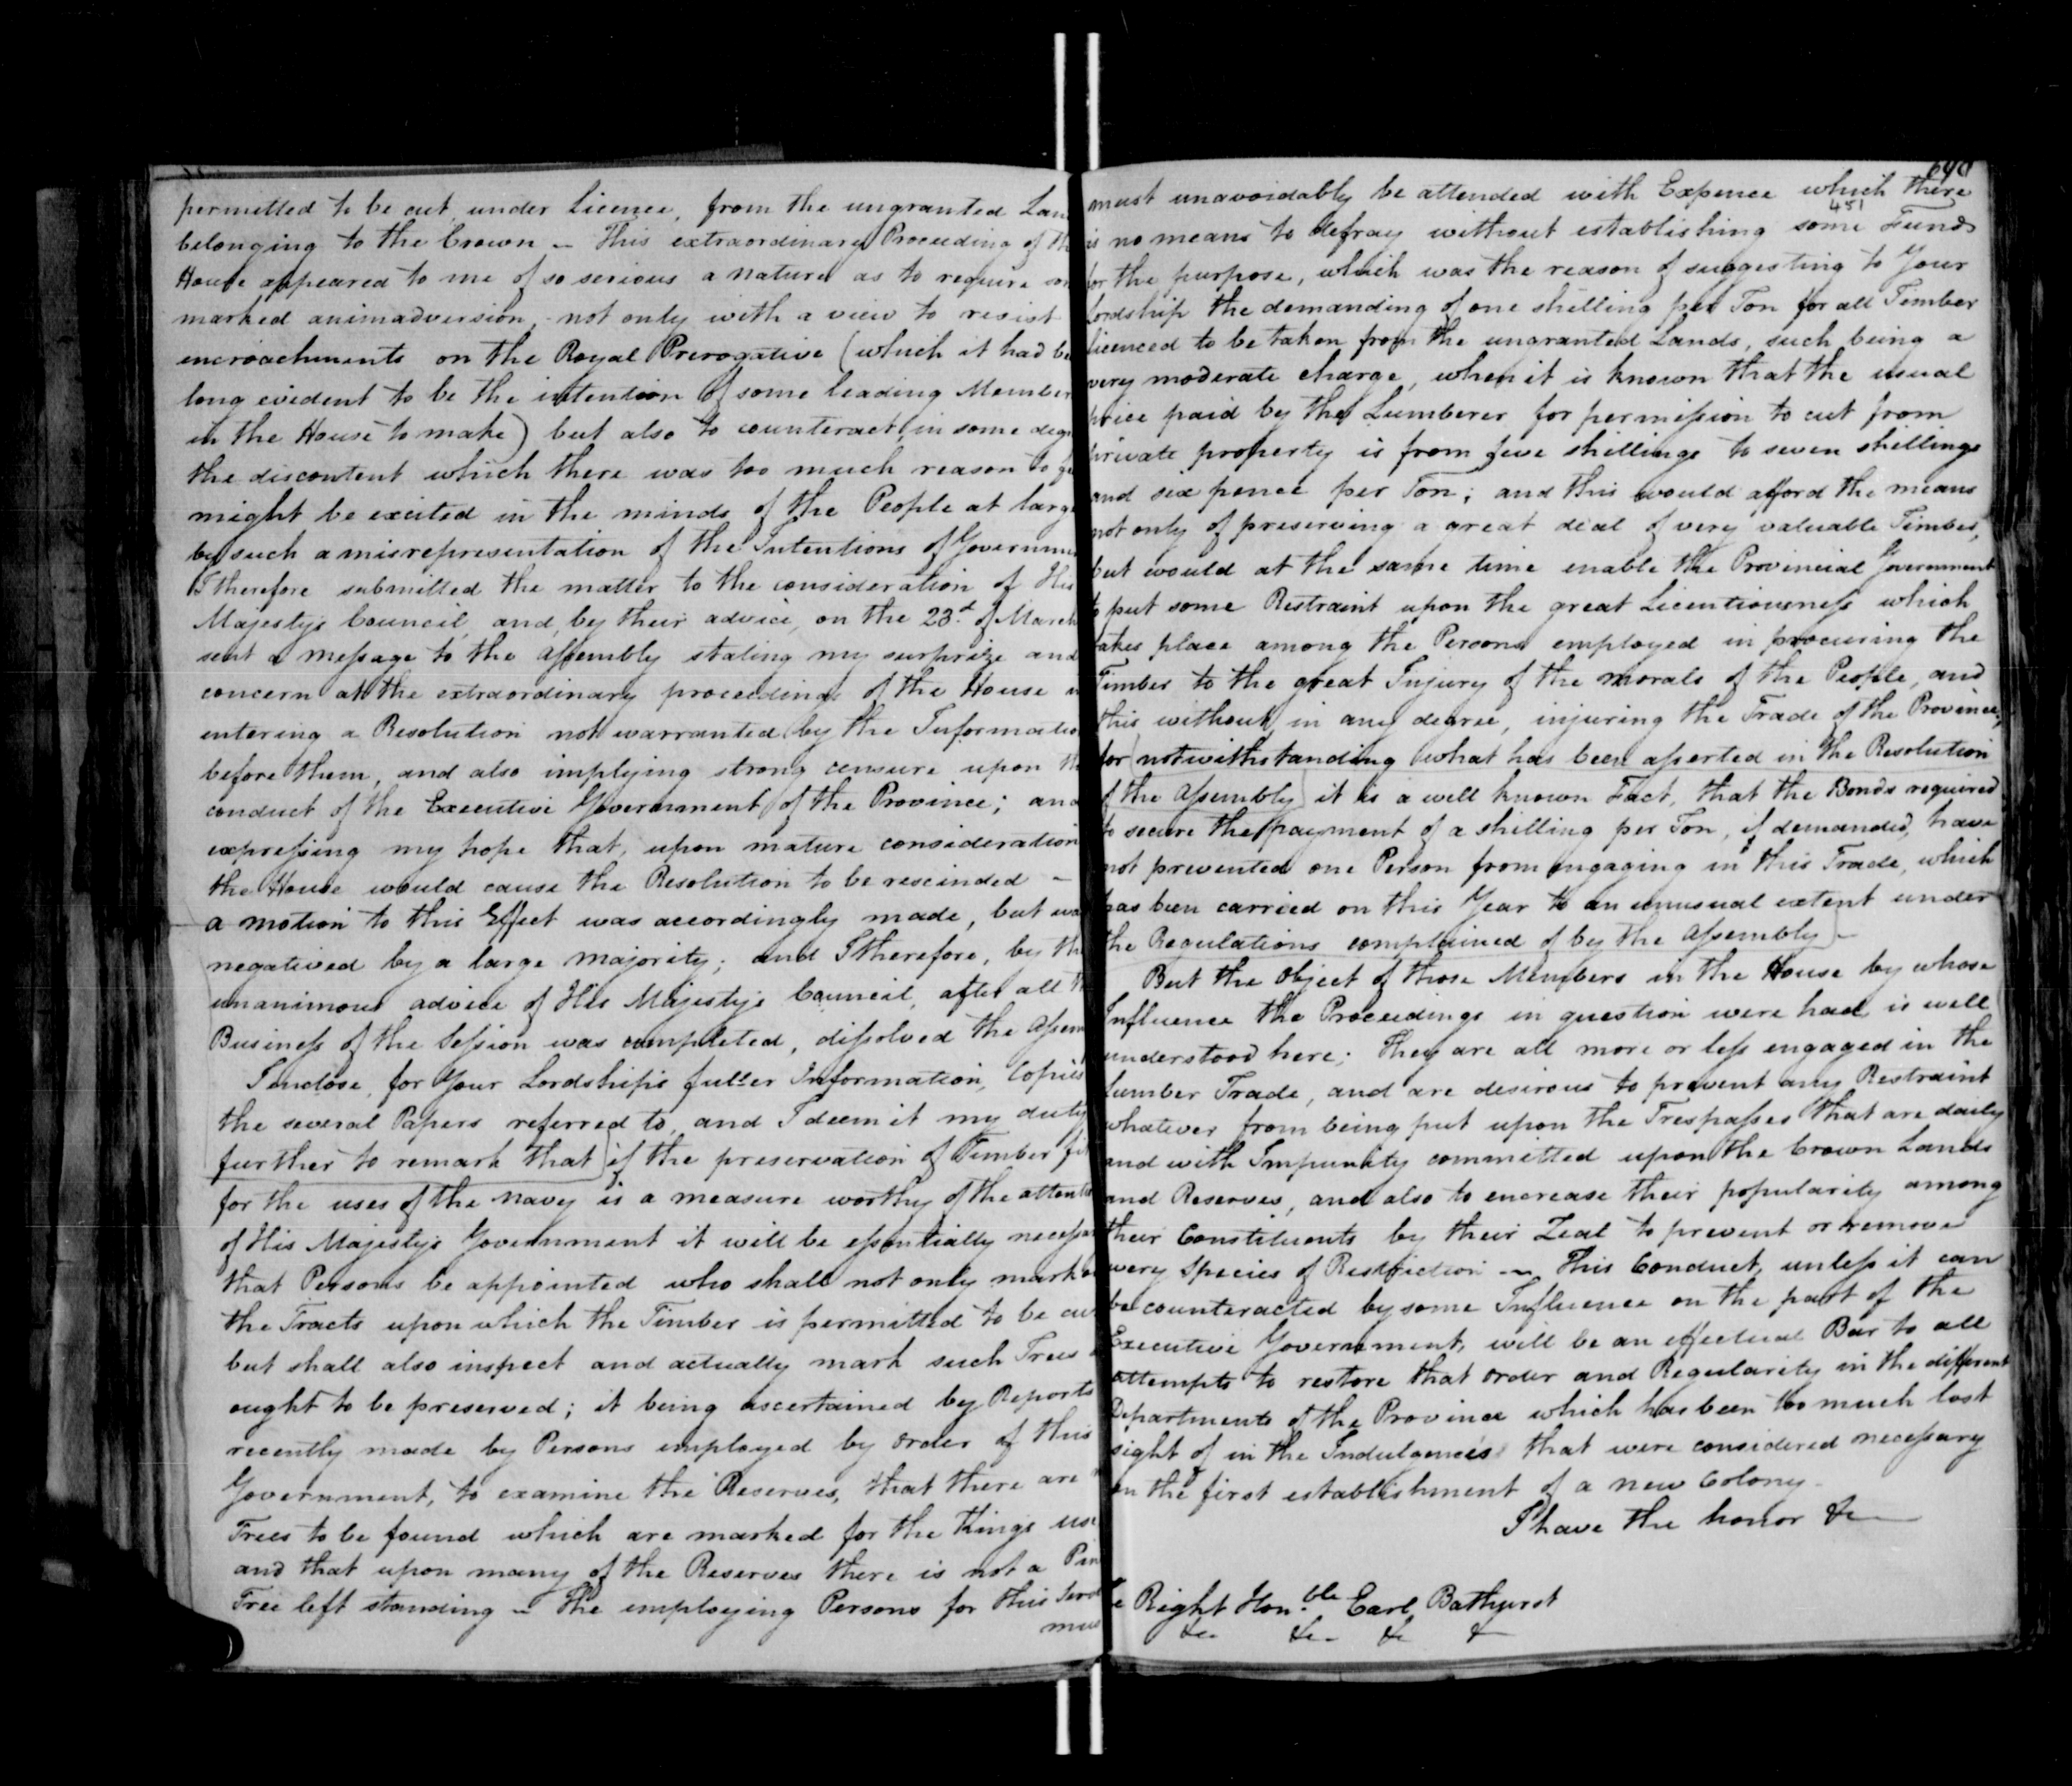 permitted to be cut, under Licence, from the ungranted Lan
belonging to the Crown — This extraordinary Proceeding of th
House appeared to me of so serious a nature as to require som
marked animadversion, not only with a view to resist
encroachments on the Royal Prerogative (which it had be
long evident to be the intention of some leading Member
in the House to make) but also to counteract, in some degr
the discontent which there was too much reason to fe
might be excited in the minds of the People at large
by such a misrepresentation of the Intentions of Governme
I therefore submitted the matter to the consideration of His
Majesty's Council, and, by their advice, on the 23.d of March
sent a message to the Assembly stating my surprize and
concern at the extraordinary proceedings of the House in
entering a Resolution not warranted by the Informatio
before them, and also implying strong censure upon th
conduct of the Executive Government of the Province; and
expressing my hope that, upon mature consideration
the House would cause the Resolution to be rescinded —
a motion to this Effect was accordingly made, but was
negatived by a large majority; and I therefore, by the
unanimous advice of His Majesty's Council, after all th
Business of the Session was completed, dissolved the Assem
I enclose, for Your Lordship's fuller Information, Copies
the several Papers referred to, and I deem it my duty
further to remark that if the preservation of Timber fit
for the uses of the Navy is a measure worthy of the attenti
of His Majesty's Government it will be essentially necessar
that Persons be appointed who shall not only mark o
the Tracts upon which the Timber is permitted to be cut
but shall also inspect and actually mark such Trees
ought to be preserved; it being ascertained by Reports
recently made by Persons employed by order of this
Government, to examine the Reserves, that there are
Trees to be found which are marked for the Kings use
and that upon many of the Reserves there is not a Pin
Tree left standing — The employing Persons for this Servi
mus
640
451
must unavoidably be attended with Expence which there
is no means to defray without establishing some Fund
for the purpose, which was the reason of suggesting to Your
Lordship the demanding of one shilling per Ton for all Timber
licenced to be taken from the ungranted Lands, such being a
very moderate charge, when it is known that the usual
price paid by the Lumberer for permission to cut from
private property is from five shillings to seven shillings
and six pence per Ton; and this would afford the means
not only of preserving a great deal of very valuable Timber,
but would at the same time enable the Provincial Government
to put some Restraint upon the great Licentiousness which
takes place among the Persons employed in procuring the
Timber to the great Injury of the morals of the People, and
this without, in any degree, injuring the Trade of the Province;
for notwithstanding what has been asserted in the Resolution
of the Assembly it is a well known Fact, that the Bonds required
to secure the payment of a shilling per Ton, if demanded, have
not prevented one Person from engaging in this Trade, which
has been carried on this Year to an unusual extent under
the Regulations complained of by the Assembly —
But the Object of those Members in the House by whose
Influence the Proceedings in question were had is well
understood here; They are all more or less engaged in the
Lumber Trade, and are desirous to prevent any Restraint
whatever from being put upon the Trespasses that are daily
and with Impunity committed upon the Crown Lands
and Reserves, and also to encrease their popularity among
their Constituents by their Zeal to prevent or remove
every Species of Restriction — This Conduct, unless it can
be counteracted by some Influence on the part of the
Executive Government, will be an effectual Bar to all
attempts to restore that order and Regularity in the different
Departments of the Province which has been too much lost
sight of in the Indulgencies that were considered necessary
in the first establishment of a new Colony —
I have the honor &c
e Right Hon.ble Earl Bathurst
&c. &c. &c &